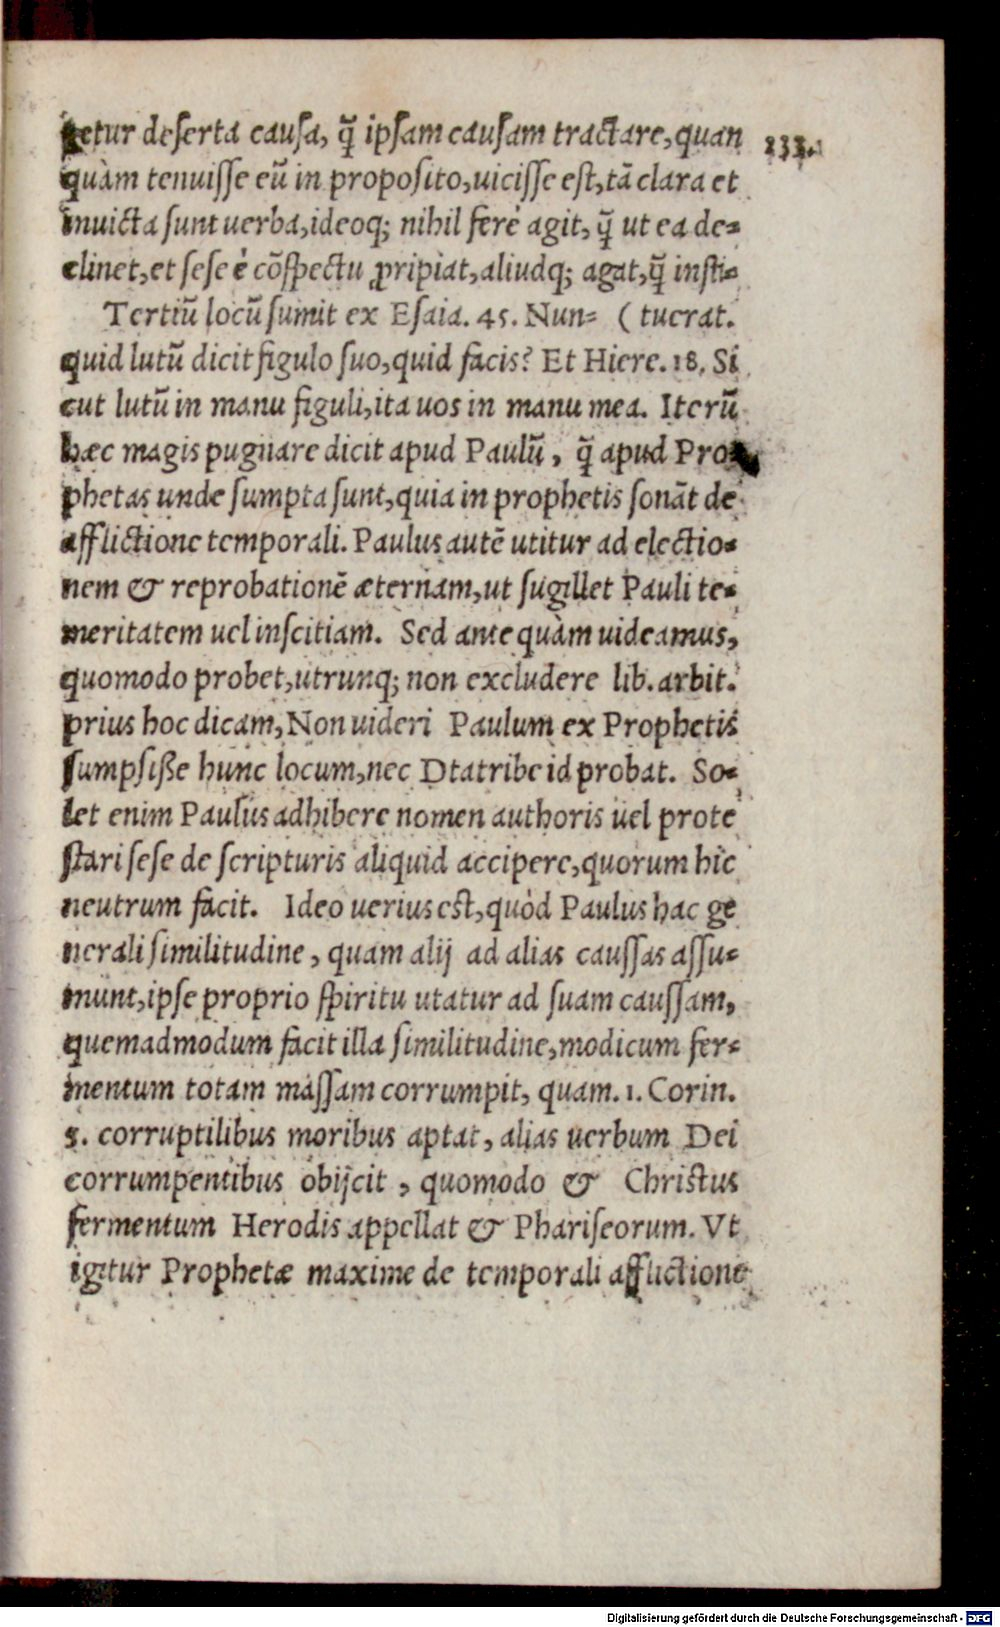 getur deserta causa, q̃ ipsam causam tractare, quan
133.
quàm tenuisse eū in proposito, uicisse est, tā clara et
inuicta sunt uerba, ideoq; nihil ferè agit, q̃ ut ea de=
clinet, et sese è cōspectu ꝓripiat, aliudq; agat, q̃ insti=
Tertiū locū sumit ex Esaia. 45. Nun= ( tuerat.
quid lutū dicit figulo suo, quid facis? Et Hiere. 18. Si
cut lutū in manu figuli, ita uos in manu mea. Iterū
hæc magis pugnare dicit apud Paulū, q̃ apud Pro=
phetas unde sumpta sunt, quia in prophetis sonāt de
afflictione temporali. Paulus autē utitur ad electio=
nem & reprobationē æternam, ut sugillet Pauli te=
meritatem uel inscitiam. Sed ante quàm uideamus,
quomodo probet, utrunq; non excludere lib. arbit.
prius hoc dicam, Non uideri Paulum ex Prophetis
sumpsiße hunc locum, nec Dtatribe id probat. So=
let enim Paulus adhibere nomen authoris uel prote
stari sese de scripturis aliquid accipere, quorum hic
neutrum facit. Ideo uerius est, quòd Paulus hac ge
nerali similitudine, quam alij ad alias caussas assu=
munt, ipse proprio spiritu utatur ad suam caussam,
quemadmodum facit illa similitudine, modicum fer=
mentum totam massam corrumpit, quam. 1. Corin.
5. corruptilibus moribus aptat, alias uerbum Dei
corrumpentibus obijcit, quomodo & Christus
fermentum Herodis appellat & Phariseorum. Vt
igitur Prophetæ maxime de temporali afflictione
Digitalisierung gefördert durch die Deutsche Forschungsgemeinschaft - DFG